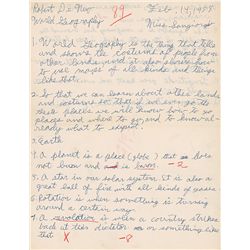 Robert De Niro 89 Feb. 14, 1958
World Geography Miss
1. World Geography is the thing that tells
and shows the customs of people from
other lands and it also shows how
to use maps of all kinds and things
like that.
2. So that we can learn about other lands
and customs so that if we ever go to
these places we will know where to go
places and where to go and to know al-
ready what to expect.
3. Earth
4. A planet is a place (globe) that does
not burn and is warm. -2
5. A star in our solar system. It is also a
great ball of fire with all kinds of gases
6. Rotation is when something is turning
around a certain way
7. A revolution is when a country strikes
back at its dictator or something like
that X -8